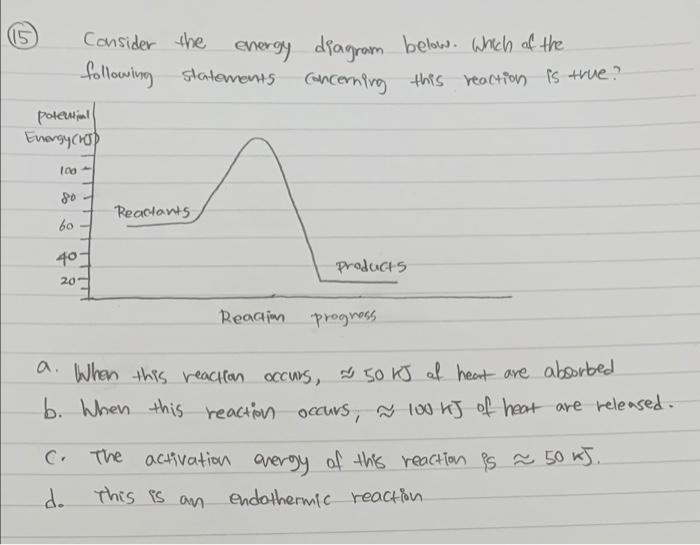 15 Consider the energy diagram below. Which of the
following statements concerning this reaction is true?
potential
Energy(KJ)
100
80
Reactants
60
40
products
20
Reaction progress
a. When this reaction occurs, ≈ 50 KJ of heat are absorbed
b. When this reaction occurs, ≈ 100 KJ of heat are released.
c. The activation energy of this reaction is ≈ 50 KJ.
d. This is an endothermic reaction